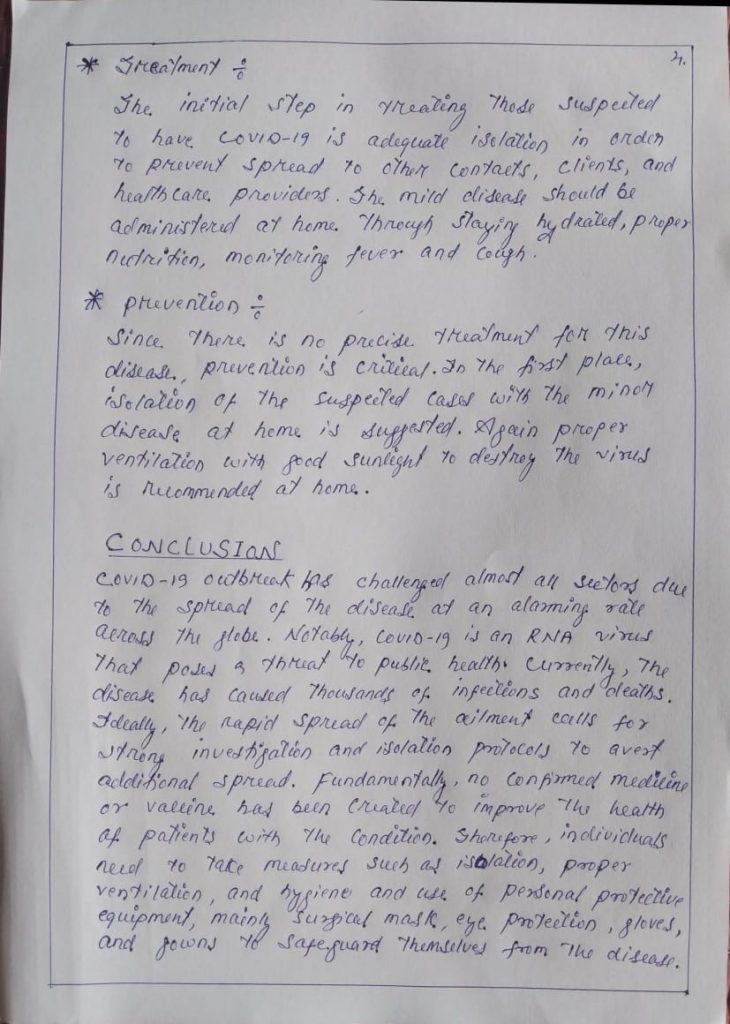 4.
* Treatment ÷
The initial step in treating those suspected
to have COVID-19 is adequate isolation in order
to prevent spread to other contacts, clients, and
healthcare providers. The mild disease should be
administered at home through staying hydrated, proper
nutrition, monitoring fever and cough.
* Prevention ÷
Since there is no precise treatment for this
disease, prevention is critical. In the first place,
isolation of the suspected cases with the minor
disease at home is suggested. Again proper
ventilation with good sunlight to destroy the virus
is recommended at home.
CONCLUSION
COVID-19 outbreak has challenged almost all sectors due
to the spread of the disease at an alarming rate
across the globe. Notably, COVID-19 is an RNA virus
that poses a threat to public health. Currently, the
disease has caused thousands of infections and deaths.
Ideally, the rapid spread of the ailment calls for
strong investigation and isolation protocols to avert
additional spread. Fundamentally, no confirmed medicine
or vaccine has been created to improve the health
of patients with the condition. Therefore, individuals
need to take measures such as isolation, proper
ventilation, and hygiene and use of personal protective
equipment, mainly surgical mask, eye protection, gloves,
and gowns to safeguard themselves from the disease.